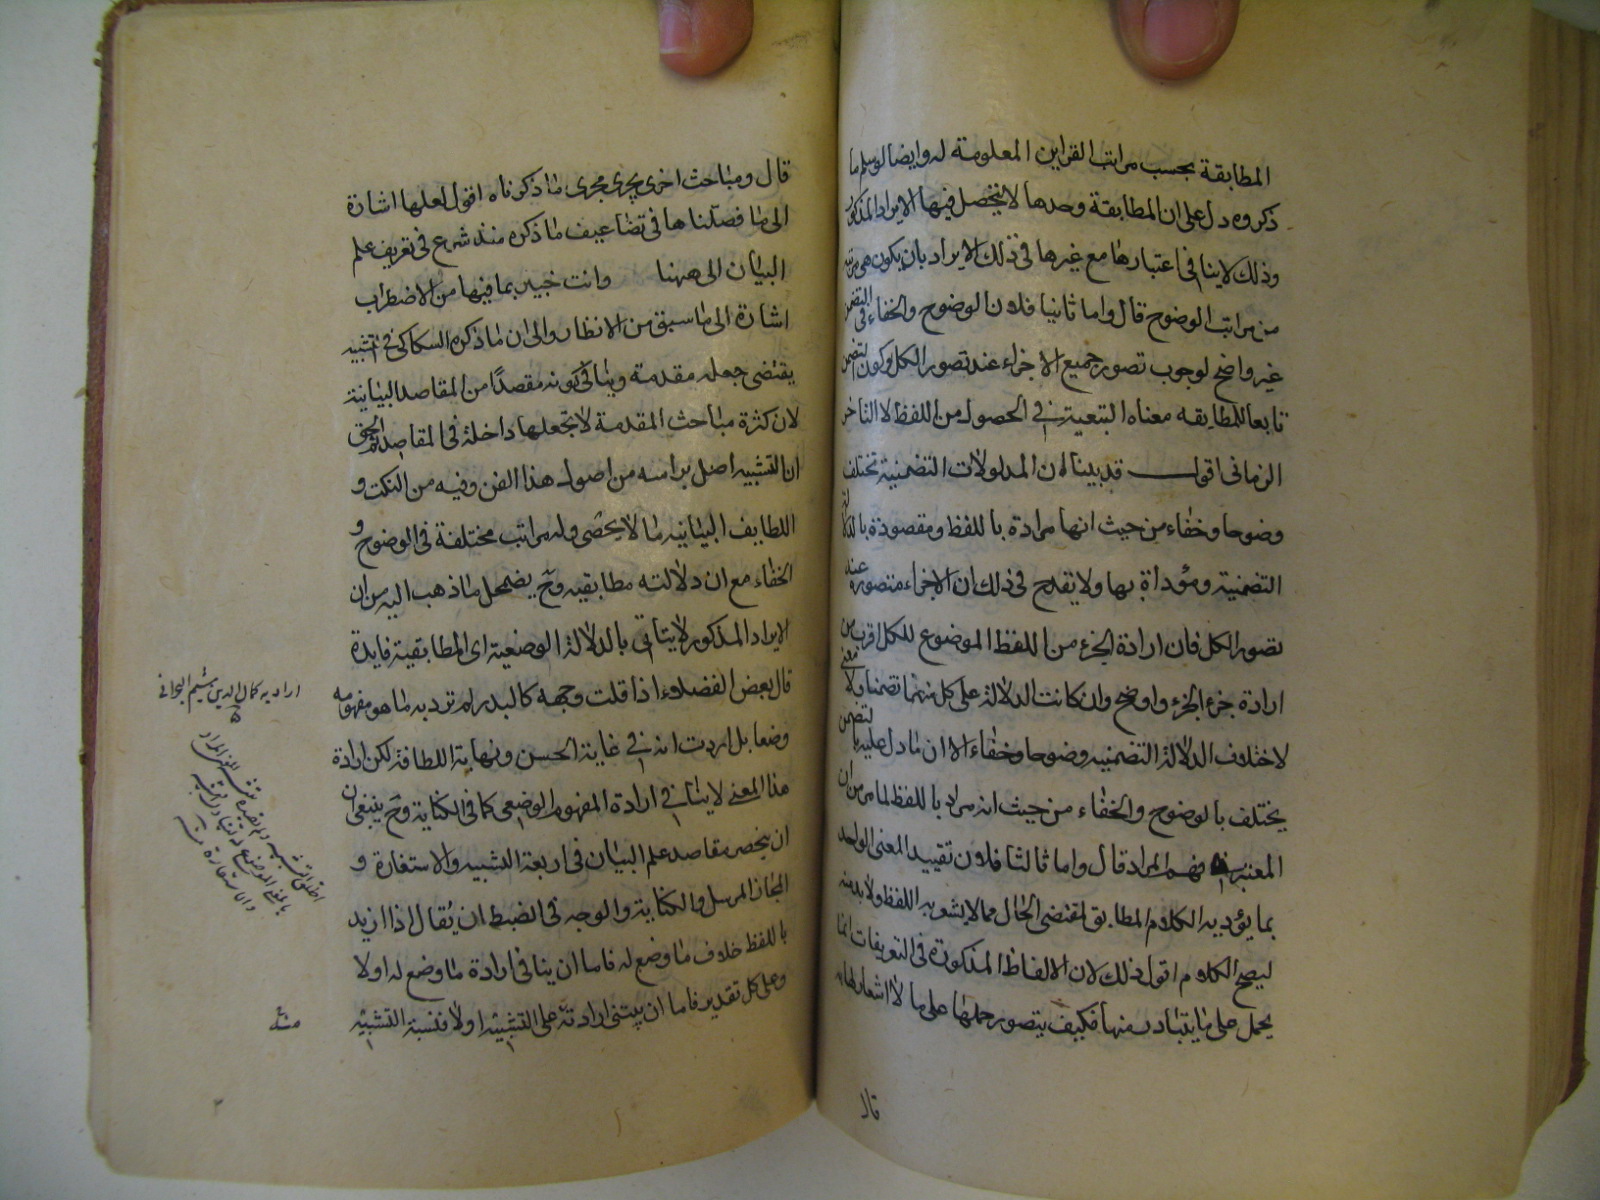 المطابقة بحسب مراتب القراين المعلومة له وايضا لو سلم ما
ذكروه دل على ان المطابقة وحدها لا يتحصل فيها الايراد المذكور
وذلك لا ينافى اعتبارها مع غيرها فى ذلك الايراد بان يكون هى مرتبة
من مراتب الوضوح قال واما ثانيا فلان الوضوح والخفاء فى التضمن
غير واضح لوجوب تصور جميع الاجزاء عند تصور الكل وكون التضمن
تابعا للمطابقه معناه التبعية فى الحصول من اللفظ لا التاخر
الزمانى اقول قد بينا ان المدلولات التضمنية تختلف
وضوحا وخفاء من حيث انها مرادة باللفظ ومقصودة بالدلالة
التضمنية ومؤداة بها ولا يقدح فى ذلك ان الاجزاء متصورة عند
تصور الكل فان ارادة الجزء من اللفظ الموضوع للكل اقرب من
ارادة جزء الجزء واوضح وان كانت الدلالة على كل منهما تضمنا ولا معنى
لاختلاف الدلالة التضمنيه وضوحا وخفاء الا ان ما دل عليه بالتضمن
يختلف بالوضوح والخفاء من حيث انه مراد باللفظ لما مر من ان
المعتبر فهم المراد قال واما ثالثا فلان تقييد المعنى الواحد
بما يؤدبه الكلام المطابق لمقتضى الحال مما لا يشعر به اللفظ ولا بد منه
ليصح الكلام اقول ذلك لان الالفاظ المذكورة فى التعريفات انما
يحمل على ما يتبادر منها فكيف يتصور حملها على ما لا اشعار لها به
قال
قال ومباحث اخرى يجرى مجرى ما ذكرناه اقول لعلها اشارة
الى ما فصلناها فى تضاعيف ما ذكره منذ شرع فى تعريف علم
البيان الى ههنا وانت خبير بما فيها من الاضطراب
اشارة الى ما سبق من الانظار والى ان ما ذكره السكاكى فى التشبيه
يقتضى جعله مقدمة وينافى كونه مقصدا من المقاصد البيانية
لان كثرة مباحث المقدمة لا تجعلها داخلة فى المقاصد ثم الحق
ان التشبيه اصل براسه من اصول هذا الفن وفيه من النكت و
اللطايف البيانيه ما لا يحصى وله مراتب مختلفة فى الوضوح و
الخفاء مع ان دلالته مطابقيه وح يضمحل ما ذهب اليه من ان
الايراد المذكور لا يتاتى بالدلالة الوضعية اى المطابقية فايدة
قال بعض الفضلاء اذا قلت وجهه كالبدر لم ترد به ما هو مفهومه
وضعا بل اردت انه فى غاية الحسن ونهاية اللطافة لكن ارادة
هذا المعنى لا ينافى ارادة المفهوم الوضعى كما فى الكناية وح ينبغى ان
ان ينحصر مقاصد علم البيان فى اربعة التشبيه والاستعارة و
المجاز المرسل والكناية والوجه فى الضبط ان يقال اذا اريد
باللفظ خلاف ما وضع له فاما ان ينافى ارادة ما وضع له اولا
وعلى كل تقدير فاما ان يبتنى ارادته على التشبيه اولا فنسبة التشبيه
اراد به كمال الدين ميثم البحرانى